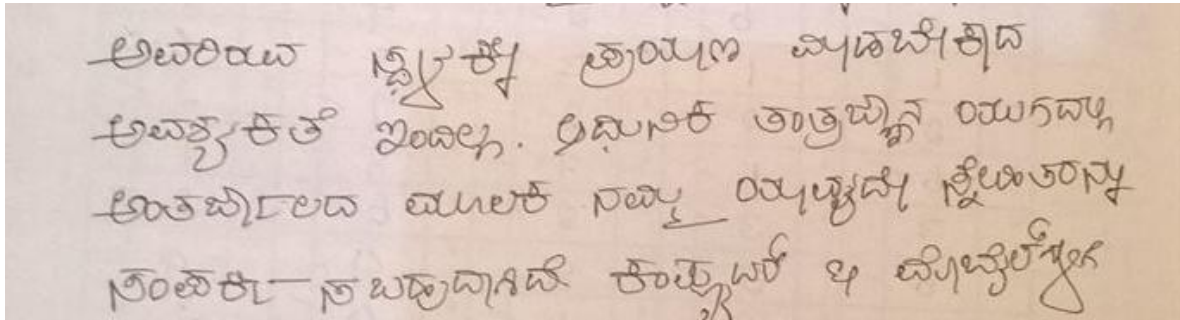 ಅವರಿರುವ ಸ್ಥಳಕ್ಕೆ ಪ್ರಯಾಣ ಮಾಡಬೇಕಾದ
ಅವಶ್ಯಕತೆ ಇಂದಿಲ್ಲ. ಆಧುನಿಕ ತಂತ್ರಜ್ಞಾನ ಯುಗದಲ್ಲಿ
ಅಂತರ್ಜಾಲದ ಮೂಲಕ ನಮ್ಮ ಯಾವುದೇ ಸ್ನೇಹಿತರನ್ನು
ಸಂಪರ್ಕಿಸಬಹುದಾಗಿದೆ ಕಂಪ್ಯೂಟರ್ ಮೊಬೈಲ್‌ಗಳ